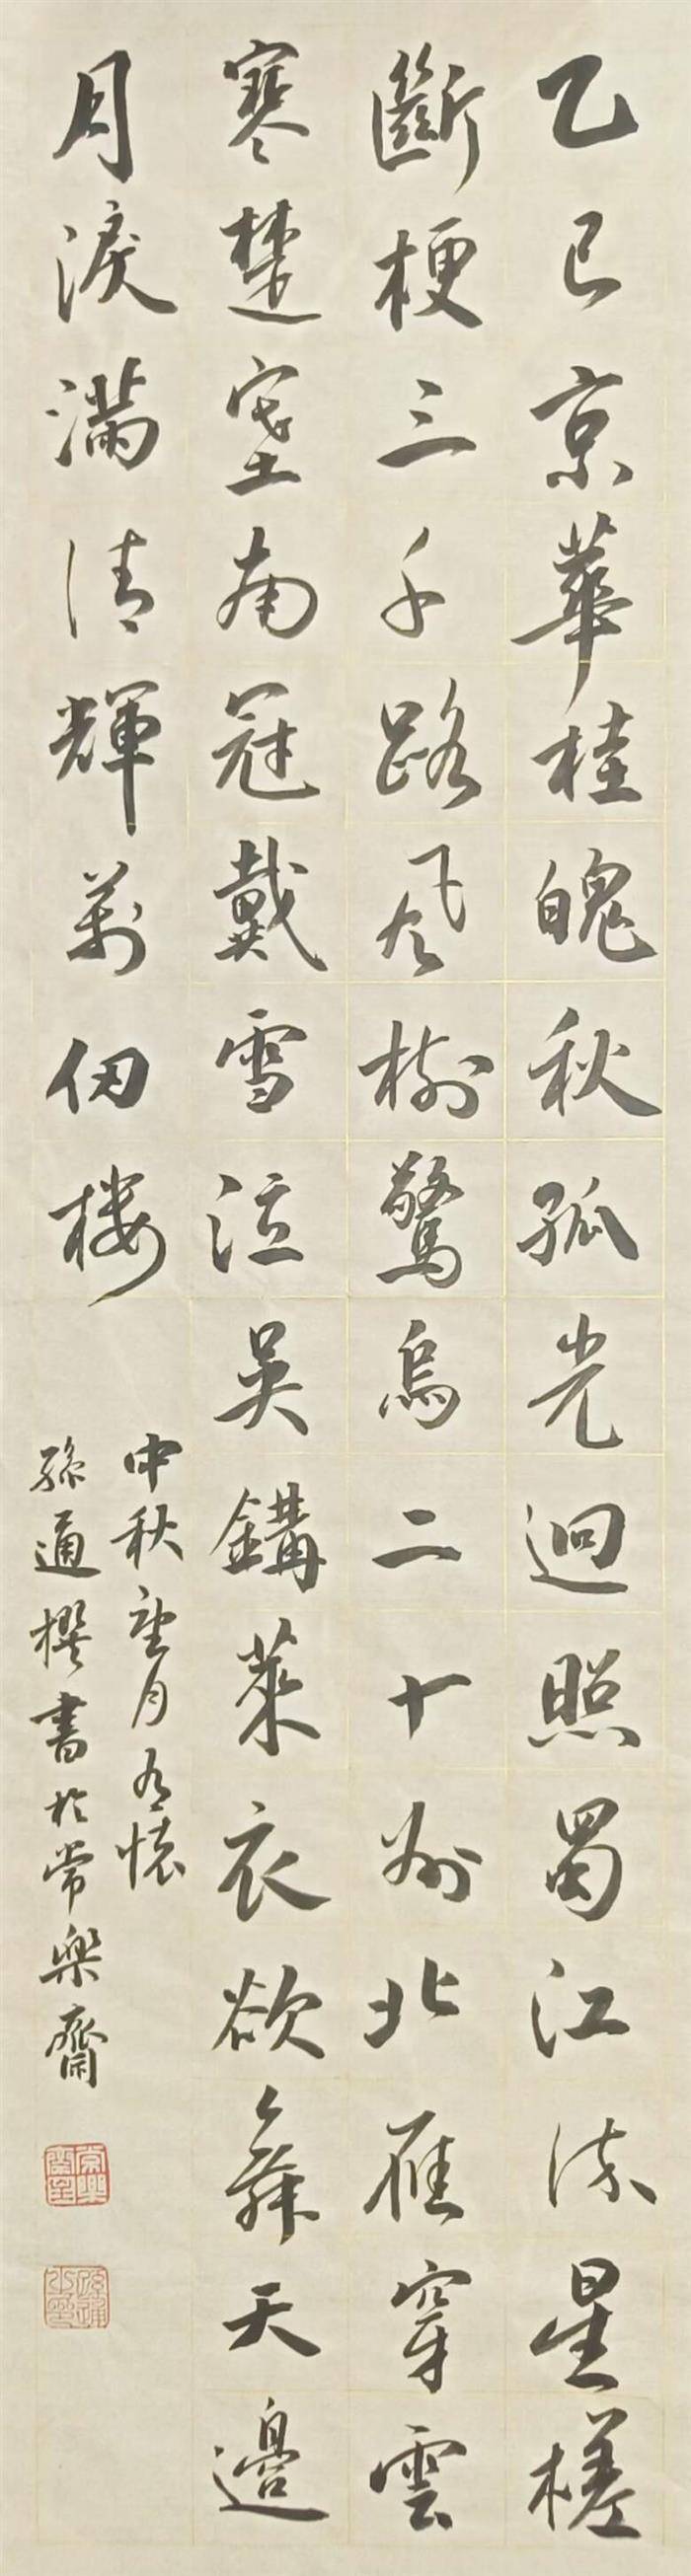 乙巳京華桂魄秋孤光迴照蜀江流星槎
斷梗三千路風樹驚烏二十州北雁穿雲
寒楚塞南冠戴雪泣吳鉤萊衣欲舞天邊
月淚滿清輝萬仞樓
中秋望月有懷
孫通撰書於常樂齋